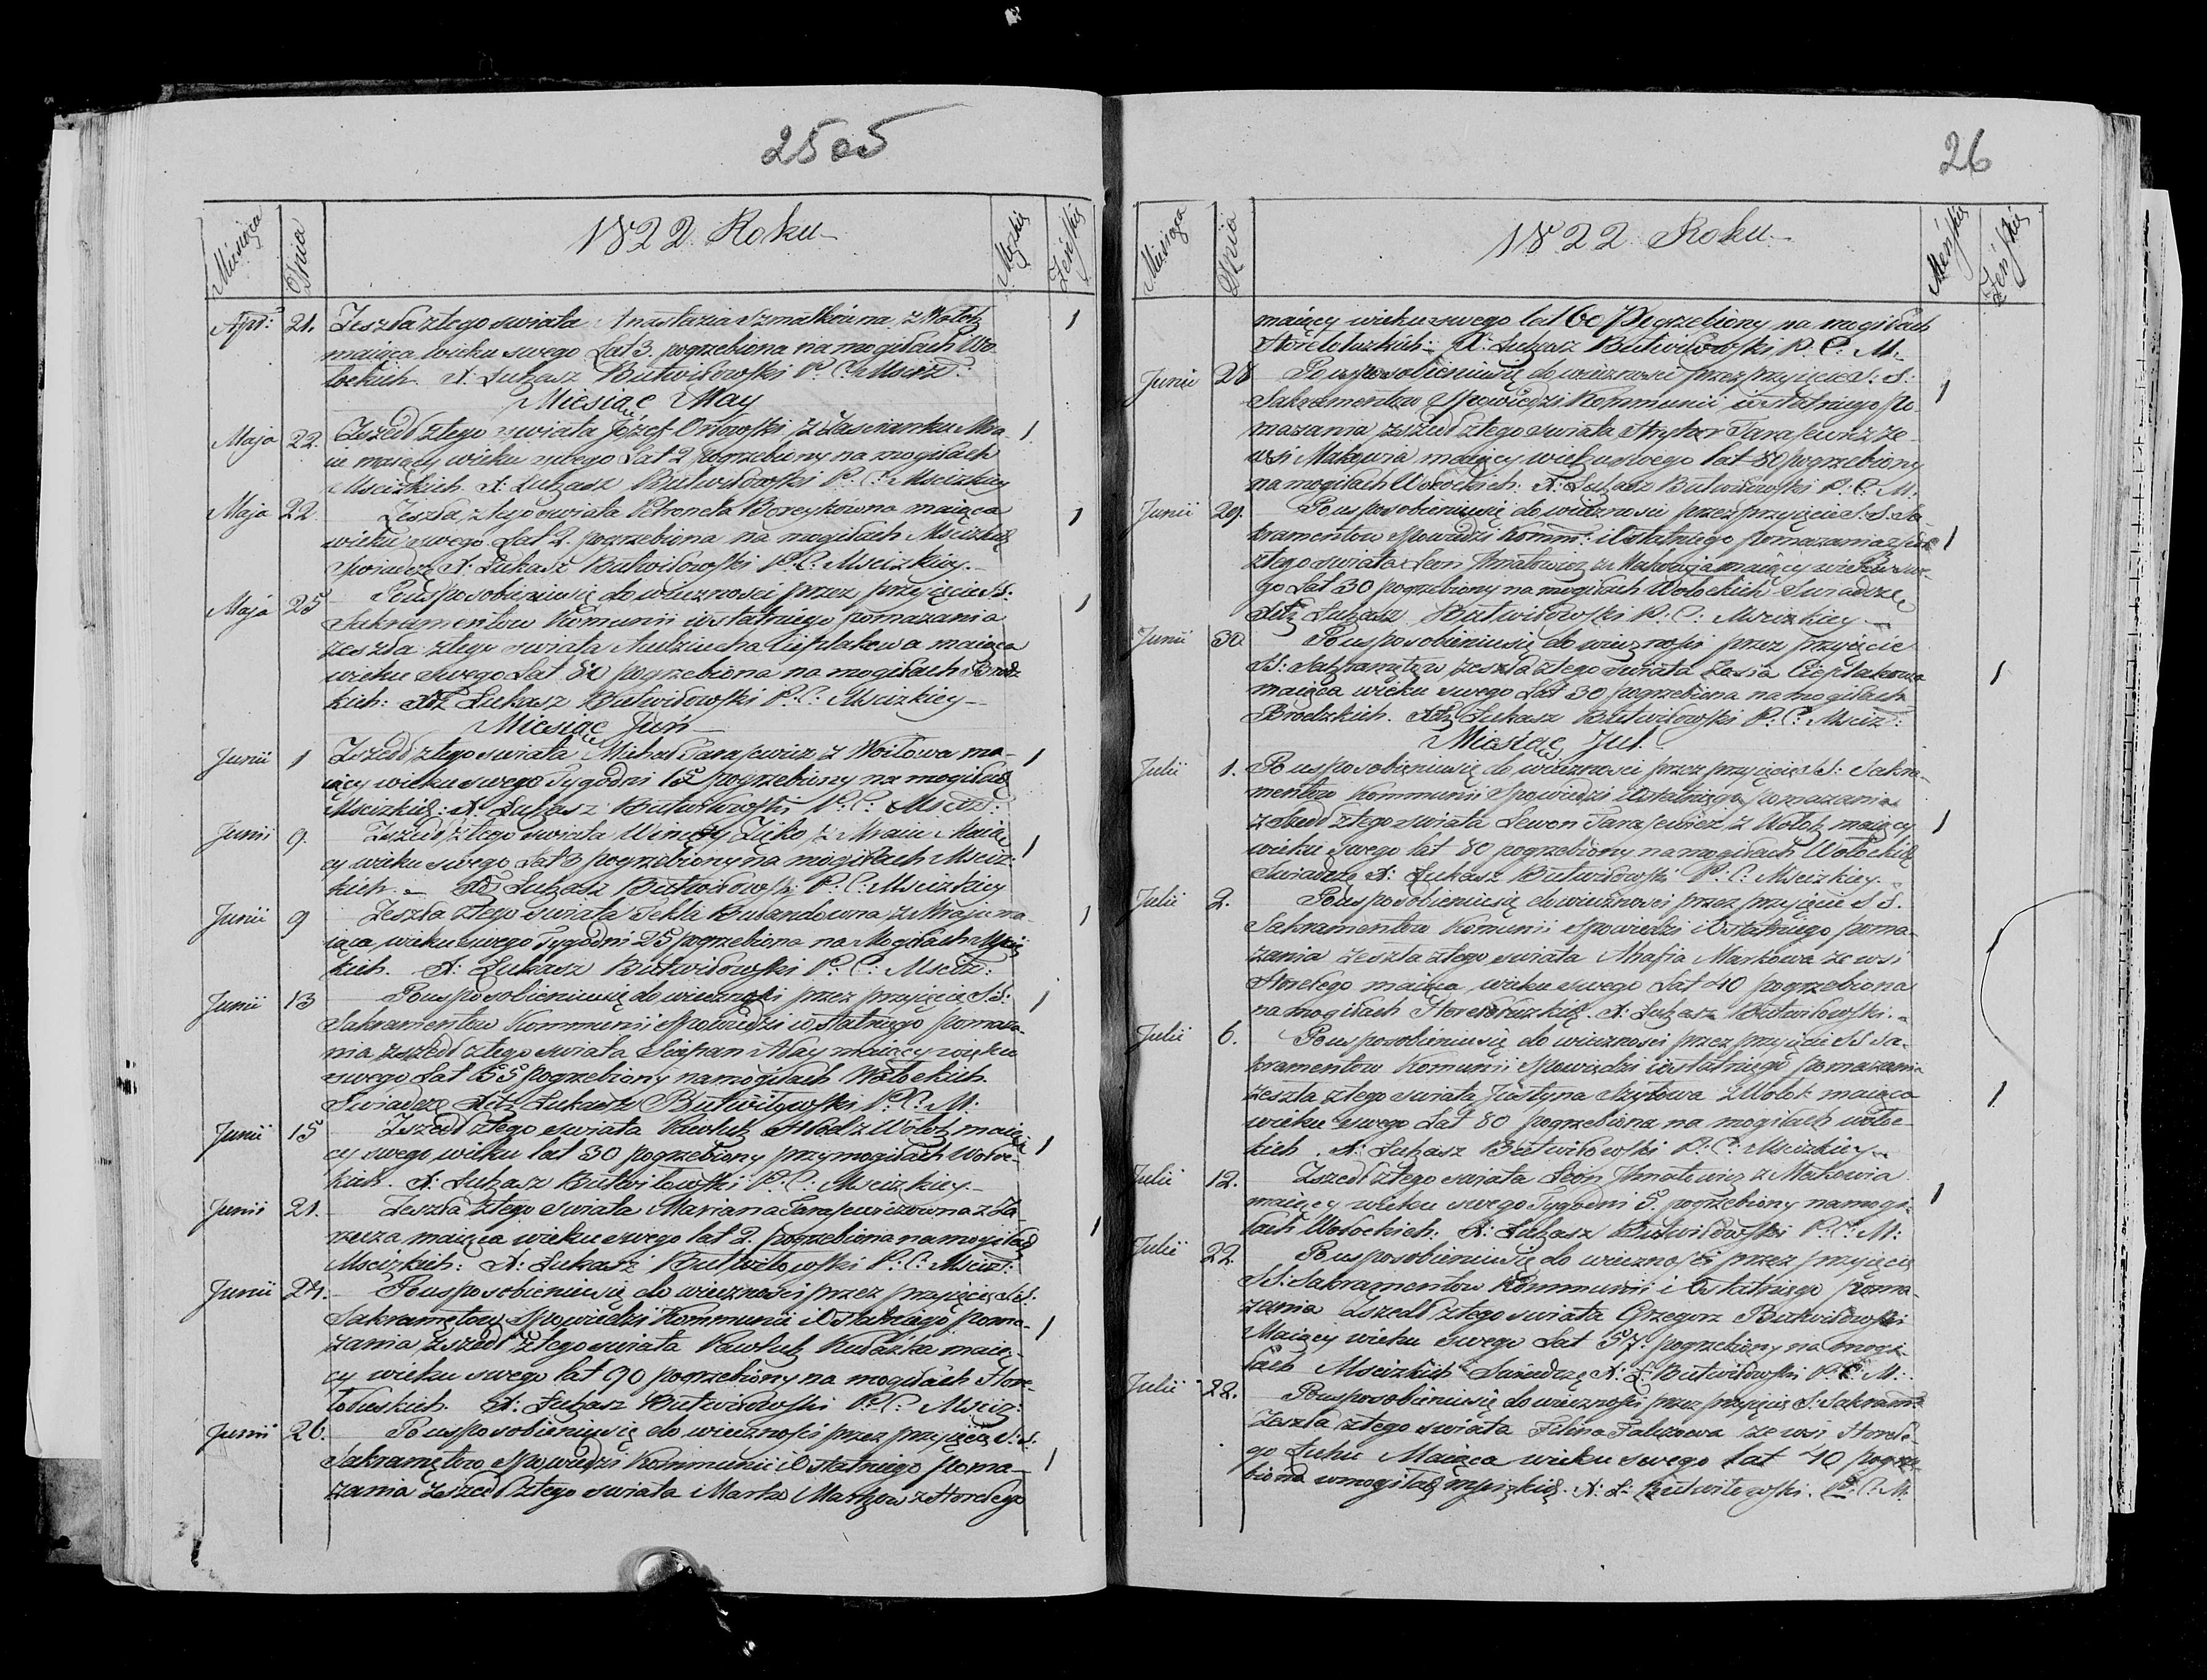 25 об
Miesiąca Dnia 1822 Roku Męzkie Żeńskie
Apr: 21. Zeszła z tego swiata Anastazia Szmatkowna z Wołok 1
maiąca wieku swego Lat 3. pogrzebiona na mogiłach Wo-
łockich. X: Łukasz Butwiłowski P. C. Msciz:
Miesiąc May
Maja 22. Zszedł z tego swiata Józef Orłowski z Zascianku Mra- 1
iu maiący wieku swego Lat 2 pogrzebiony na mogiłach
Mscizkich. X: Łukasz Butwiłowski P: C: Mscizkiey
Maja 22. Zeszła z tego swiata Petronela Boreykowna maiąca 1
wieku swego Lat 2. pogrzebiona na mogiłach Mscizkich
Swiadczę X: Łukasz Butwiłowski P: C: Mscizkiey.
Maja 25 Po usposobieniu się do wiecznosci przez przyięcie SS: 1
Sakramentow Komunii i ostatniego pomazania
zeszła z tego swiata Audziucha Cieplakowa maiąca
wieku swego Lat 80 pogrzebiona na mogiłach Brodz-
kich: Xdz Łukasz Butwiłowski P: C: Mscizkiey
Miesiąc Juń
Junii 1 Zszedł z tego swiata Michał Tarasewicz z Woiłowa ma- 1
iący wieku swego Tygodni 15 pogrzebiony na mogiłach
Mscizkich: X: Łukasz Butwiłowski P: C: Msciz:
Junii 9. Zszedł z tego swiata Wincenty Zuko z Mraiu Maią- 1
cy wieku swego Lat 3 pogrzebiony na mogiłach Msciz-
kich. Xdz Łukasz Butwiłowski P: C: Mscizkiey
Junii 9 Zeszła z tego swiata Tekla Butandowna z Mraju ma- 1
iąca wieku swego Tygodni 25 pogrzebiona na Mogiłach Msciz-
kich. X: Łukasz Butwiłowski P: C: Msciz:
Junii 13 Po usposobieniu się do wiecznosci przez przyięcie SS: 1
Sakramentow Kommunii Spowiedzi i ostatniego pomaza-
nia zszedł z tego swiata Sciepan Abay maiący wieku
swego Lat 65 pogrzebiony na mogiłach Wołockich.
Swiadczę Xdz Łukasz Butwiłowski P: C: M:
Junii 15 Zszedł z tego swiata Pawluk z Wołok maią- 1
cy swego wieku lat 30 pogrzebiony przy mogiłach Wołoc-
kich. X: Łukasz Butwiłowski P: C: Mscizkiey.
Junii 21. Zeszła z tego swiata Mariana Tarasewiczowna z Za- 1
rzecza maiąca wieku swego lat 2. pogrzebiona na mogiłach
Mscizkich: X: Łukasz Butwiłowski P: C: Msciz:
Junii 24. Po usposobieniu się do wiecznosci przez przyięcie SS:
Sakramętow Spowiedzi Kommunii i Ostatniego poma- 1
zania zszedł z tego swiata Pawluk Kudazka maią-
cy wieku swego lat 90 pogrzebiony na mogiłach Hore-
łoluskich. X: Łukasz Butwiłowski P: C: Msciz:
Junii 26. Po usposobieniu się do wiecznosci przez przyięcie S:S.
Sakramętow Spowiedzi Kommunii i Ostatniego poma- 1
zania zszedł z tego swiata Marko Markow z Horełego
26
Miesiąca Dnia 1822 Roku Męskie Żeńskie
maiący wieku swego lat 60 Pogrzebiony na mogiłach
Horełoluzkich: X: Łukasz Butwiłowski P. C. M:
Junii 28 Po usposobieniu się do wiecznosci przez przyięcie S: S: 1
Sakramentow Spowiedzi Kommunii i ostatniego po-
mazania zszedł z tego swiata Tarasewicz ze
wsi Makowia maiący wieku swego lat 80 pogrzebiony
na mogiłach Wołockich: X: Łukasz Butwiłowski P: C: M:
Junii 29. Po usposobieniu się do wiecznosci przez przyięcie S. S. Sa-
kramentow Spowiedzi Komm: i Ostatniego pomazania zszedł 1
z tego swiata Leon Hnatowicz z Makowia maiący wieku swe-
go Lat 30 pogrzebiony na mogiłach Wołockich Swiadczę
Xdz Łukasz Butwiłowski P: C: Mscizkiey
Junii 30 Po usposobieniu się do wiecznosci przez przyięcie
SS: Sakramętow zeszła z tego swiata Zosia Cieplakowa 1
maiąca wieku swego Lat 30 pogrzebiona na mogiłach
Brodzkich. Xdz Łukasz Butwiłowski P: C: Msciz:
Miesiąc Jul.
Julii 1. Po usposobieniu się do wiecznosci przez przyięcie SS: Sakra-
mentow Kommunii Spowiedzi i Ostatniego pomazania
zszedł z tego swiata Lewon Tarasewicz z Wołok maiący 1
wieku swego lat 80 pogrzebiony na mogiłach Wołockich
Swiadczę X: Łukasz Butwiłowski P: C: Mscizkiey.
Julii 2. Po usposobieniu się do wiecznosci przez przyięcie S S.
Sakramentow Komunii Spowiedzi i Ostatniego poma- 1
zania zeszła z tego swiata Ahafia Markowa ze wsi
Horełego maiąca wieku swego Lat 40 pogrzebiona
na mogiłach Horełołuzkich. X: Łukasz Butwiłowski.
Julii 6. Po usposobieniu się do wiecznosci przez przyięcie SS Sa-
kramentow Komunii Spowiedzi i ostatniego pomazania
zeszła z tego swiata Justyna Szyłowa z Wołok maiąca 1
wieku swego Lat 80 pogrzebiona na mogiłach wołoc-
kich. X: Łukasz Butwiłowski P: C: Mscizkiey
Julii 12. Zszedł z tego swiata Leon Hnatowicz z Makowia
maiący wieku swego Tygodni 5. pogrzebiony na mogi- 1
łach Wołockich: X: Łukasz Butwiłowski P: C: M:
Julii 22. Po usposobieniu się do wiecznosci przez przyięcie
SS: Sakramentow Kommunii i Ostatniego poma-
zania Zszedł z tego swiata Grzegorz Butwiłowski
Maiący wieku swego Lat 57. pogrzebiony na mogi-
łach Mscizkich Swiadczę X: Ł: Butwiłowski P: C: M:
Julii 22. Po usposobieniu się do wiecznosci przez przyięcie S: Sakram:
Zeszła z tego swiata ze wsi Horełe-
go Łuhu Maiąca wieku swego lat 40 pogrze-
biona w mogiłach mscizkich. X: Ł: Butwiłowski. P: C: M.